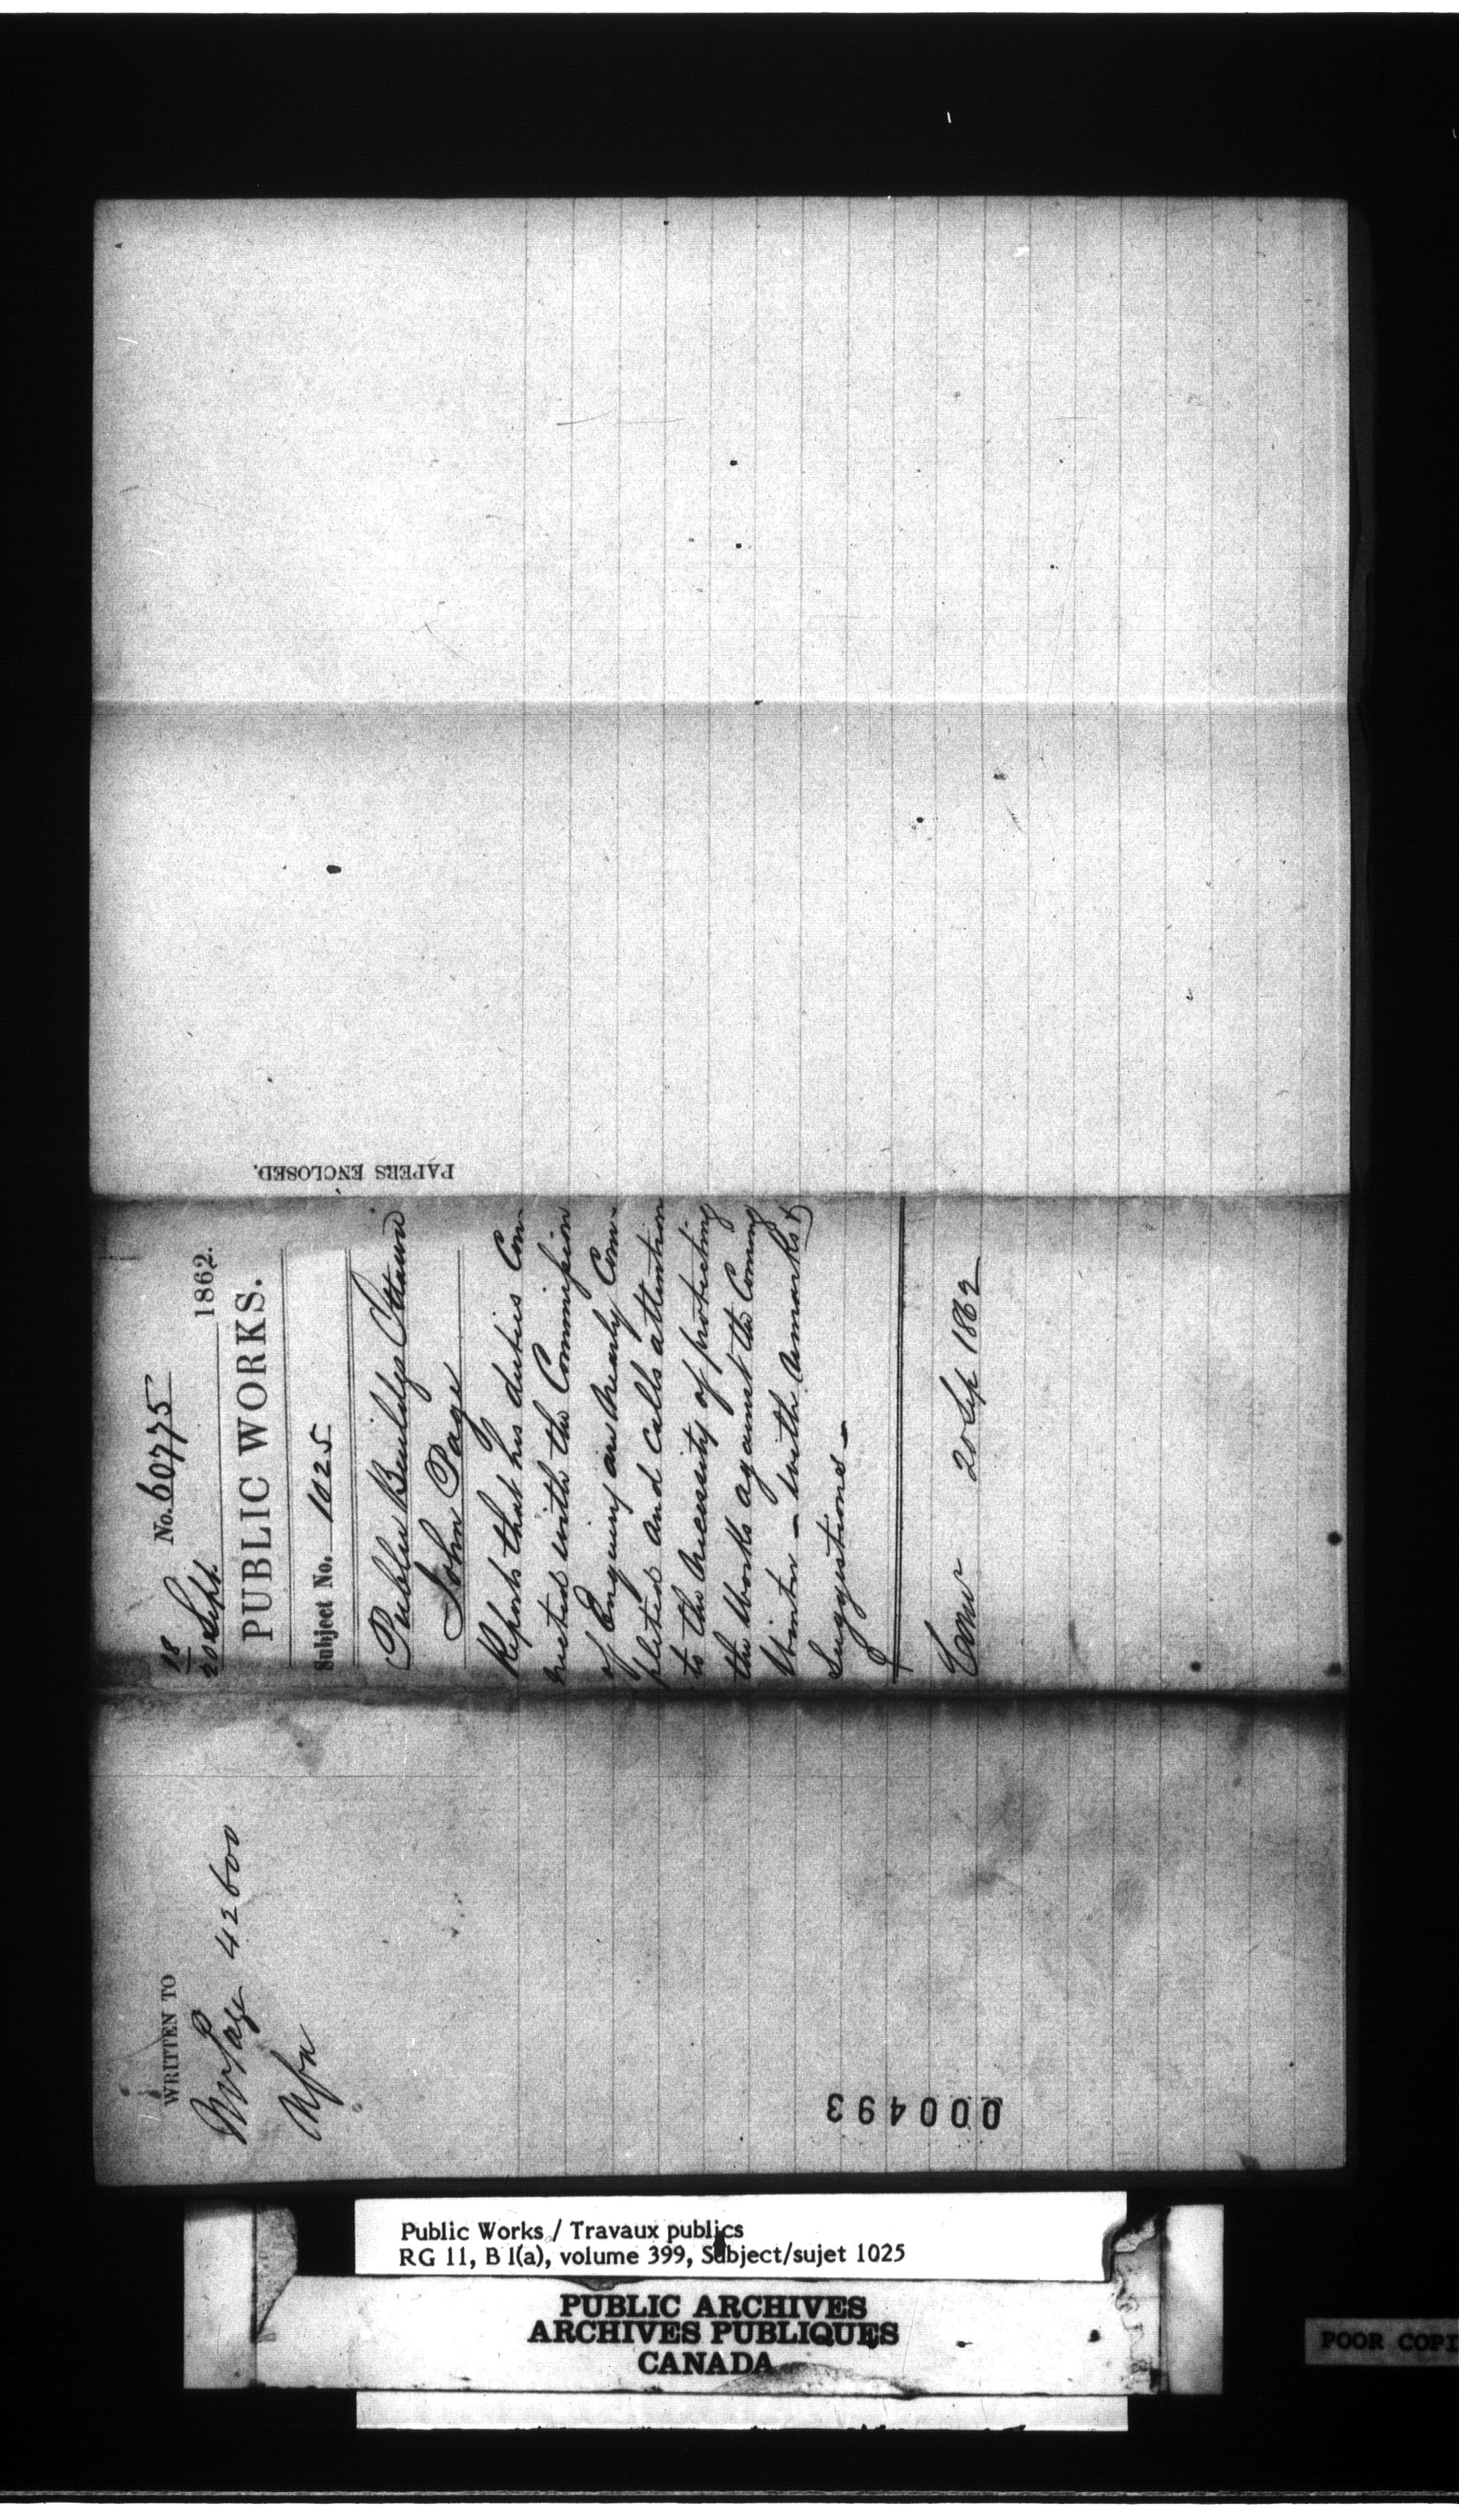 PAPERS ENCLOSED.
No. 60775
18
20 Sept. 1862.
PUBLIC WORKS.
Subject No. 1025
Public Buildgs Ottawa
John Page
Reports that his duties Con-
nected with the Commission
of Enquiry are nearly Com-
pleted and calls attention
to the necessity of protecting
the Works against the Coming
Winter – with remarks &
Suggestions –
20 Sep 1862
WRITTEN TO
Mr Page 42600
000493
Public Works / Travaux publics
RG 11, B 1(a), volume 399, Subject/sujet 1025
PUBLIC ARCHIVES
ARCHIVES PUBLIQUES
CANADA
POOR COPI